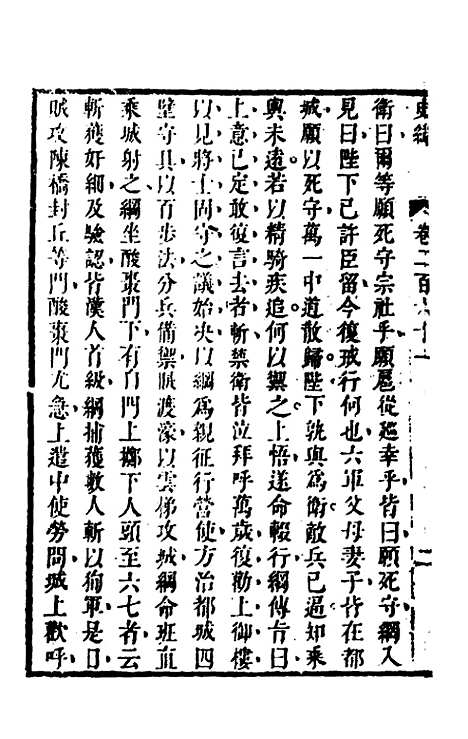 史緯　卷二百六十一　二
衛曰爾等願死守宗社乎願扈從巡幸乎皆曰願死守綱入
見曰陛下已許臣留今復戒行何也六軍父母妻子皆在都
城願以死守萬一中道散歸陛下孰與爲衛敵兵已逼知乘
輿未遠若以精騎疾追何以禦之上悟遂命輟行綱傳旨曰
上意已定敢復言去者斬禁衛皆泣拜呼萬歲復勸上御樓
以見將士固守之議始決以綱爲親征行營使方治都城四
壁守具以百步法分兵備禦賊渡濠以雲梯攻城綱命班直
乘城射之綱坐酸棗門下有自門上擲下人頭至六七者云
斬獲奸細及驗認皆漢人首級綱捕獲數人斬以狥軍是日
賊攻陳橋封丘等門酸棗門尤急上遣中使勞問城上歡呼